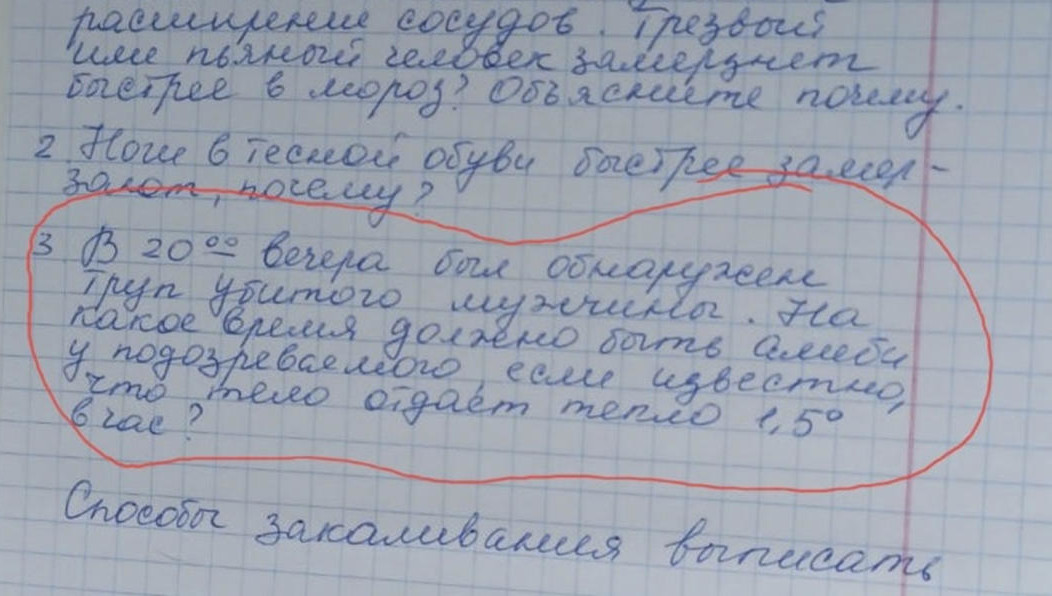 расширение сосудов. Трезвый
или пьяный человек замерзнет
быстрее в мороз? Объясните почему.
2 Ноги в тесной обуви быстрее замер-
зают, почему?
3 В 20⁰⁰ вечера был обнаружен
труп убитого мужчины. На
какое время должно быть алиби
у подозреваемого, если известно,
что тело отдаёт тепло 1,5°
в час?
Способы закаливания выписать